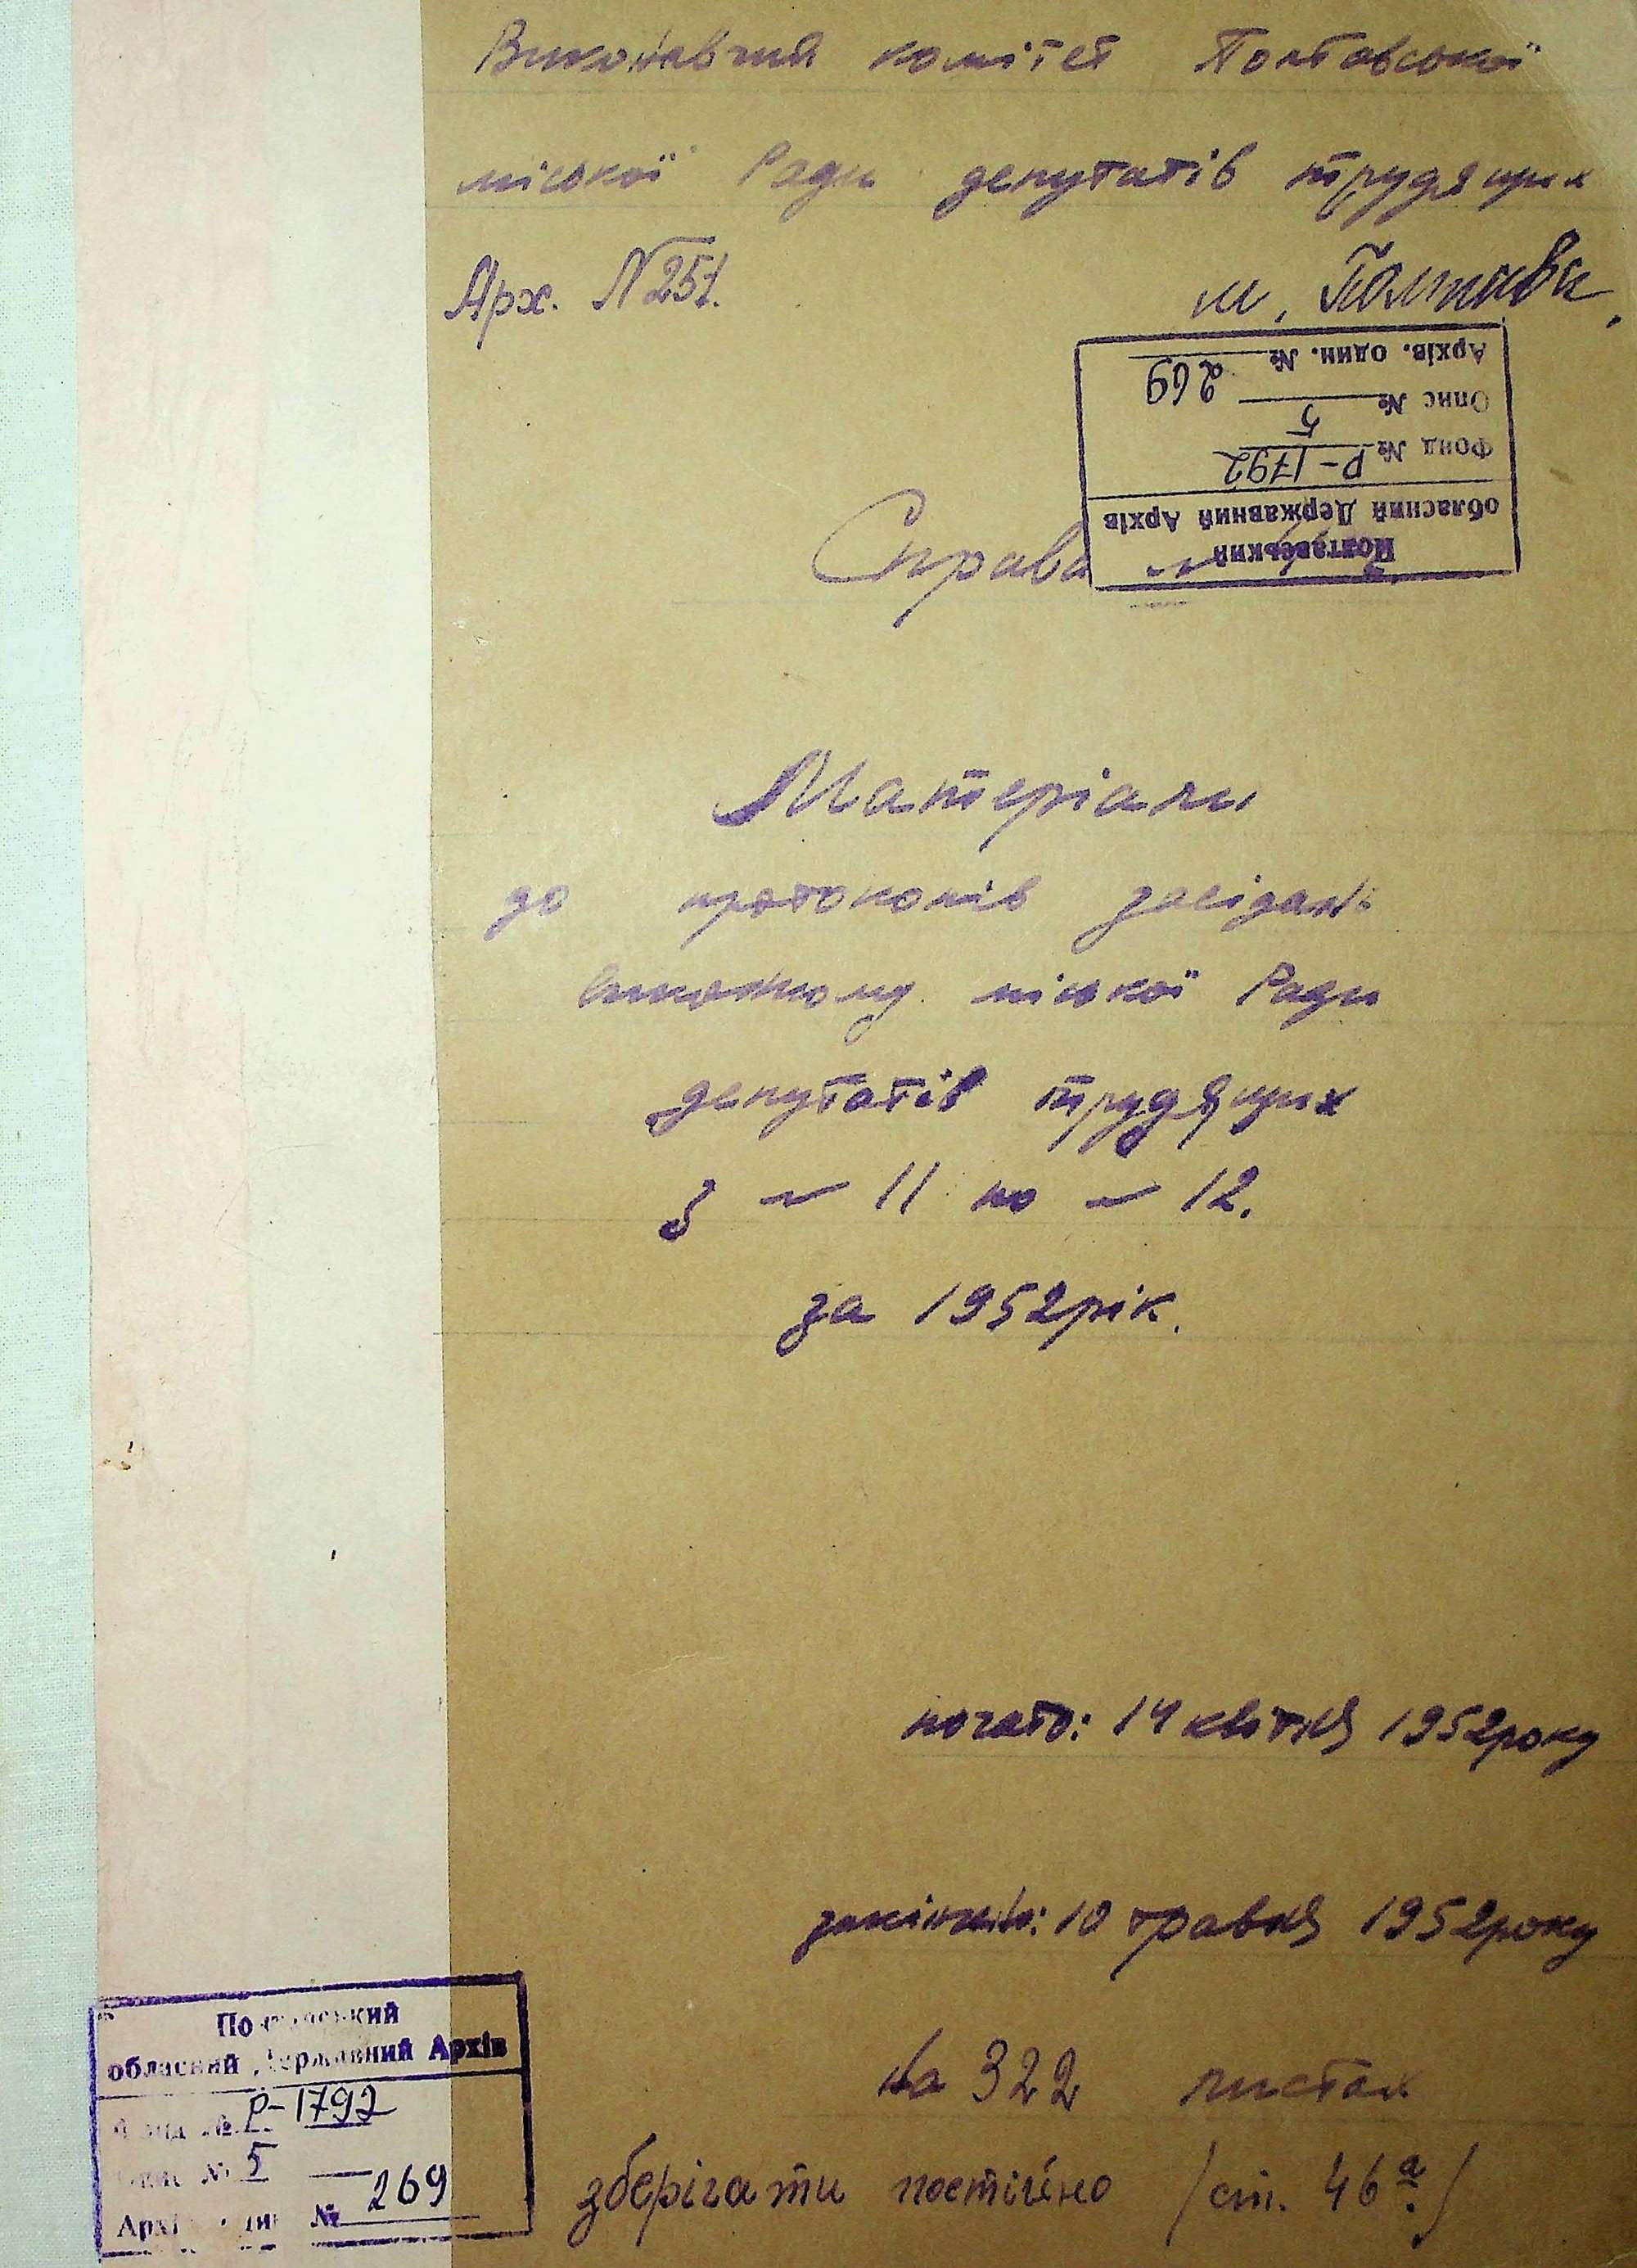 Виконавчий комітет Полтавської
міської Ради депутатів трудящих
Арх. N 251.
м. Полтава.
Архів. один. № 269
Опис № 5
Фонд № Р-1792
обласний Державний Архів
Полтавський
Справа №
Матеріали
до протоколів засідань
виконкому міської Ради
депутатів трудящих
з № 11 по № 12.
за 1952 рік.
почато: 14 квітня 1952 року
закінчено: 10 травня 1952 року
на 322 листах
зберігати постійно (ст. 46 а.)
Полтавський
обласний Державний Архів
Фонд № Р-1792
Опис № 5
Архів. один. № 269